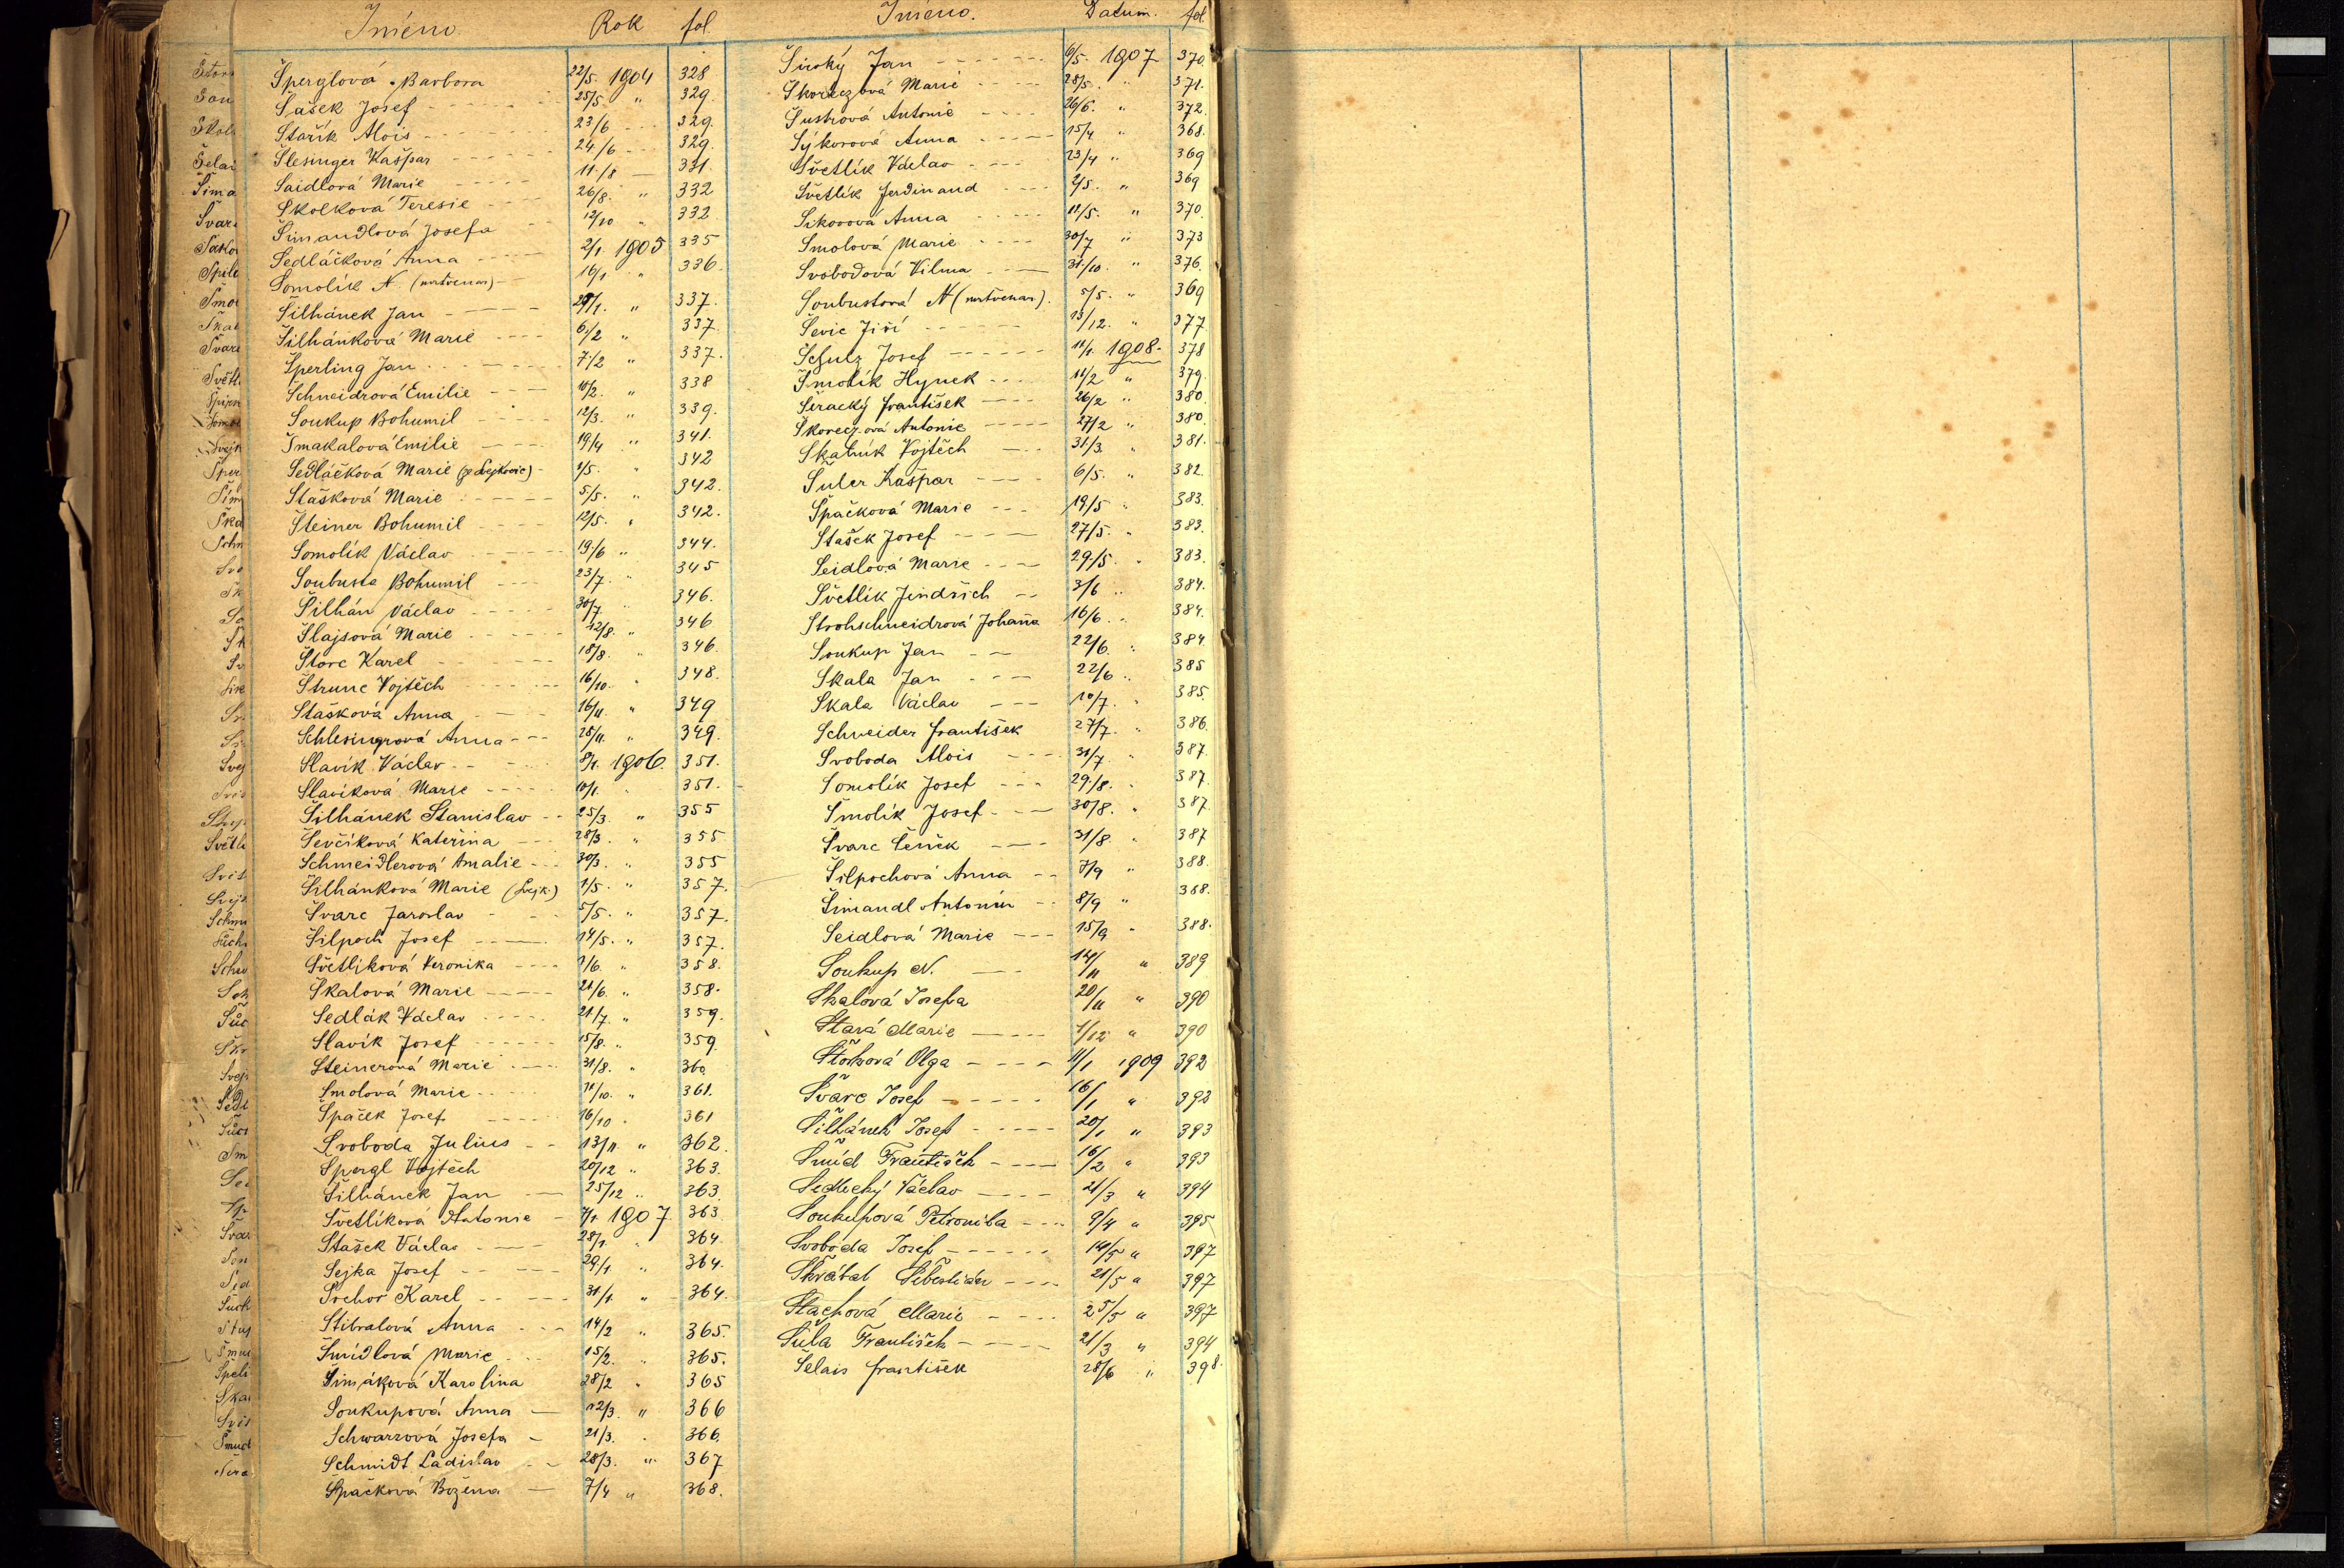 Jméno. Rok fol.
Šperglová Barbora 22/5. 1904 328
Šašek Josef 25/5 " 329.
Stařík Alois 23/6 329.
Šlesinger Kašpar 24/6 329.
Šaidlová Marie 11/8 331.
Skolková Teresie 26/8. " 332
Šimandlová Josefa 12/10 " 332
Sedláčková Anna 2/1. 1905 335
Somolík N. (nekřtěnar) 16/1 " 336.
Šilhánek Jan 29/1. " 337.
Šilhánková Marie 6/2 " 337.
Šperling Jan 7/2 " 337.
Schneidrová Emilie 10/2. " 338
Soukup Bohumil 12/3. " 339.
Smakalová Emilie 19/4 " 341.
Sedláčková Marie 1/5. " 342
Stašková Marie 5/5. " 342.
Šteiner Bohumil 12/5. " 342.
Somolík Václav 19/6 " 344.
Soubusta Bohumil 23/7. " 345
Šilhán Václav 30/7. " 346.
Šlajsová Marie 12/8. " 346
Štorc Karel 18/8. " 346.
Štrunc Vojtěch 16/10. " 348.
Stašková Anna 16/11. " 349
Schlesingrová Anna 28/11. " 349.
Slavík Václav 8/1. 1906. 351.
Slavíková Marie 10/1. " 351.
Šilhánek Stanislav 25/3. " 355
Ševčíková Kateřina 28/3. " 355
Schmeidlerová Amalie 30/3. " 355
Šilhánková Marie (Svejk.) 1/5. " 357.
Švarc Jaroslav 5/5. " 357.
Šilpoch Josef 14/5. " 357.
Světlíková Veronika 1/6. " 358.
Škalová Marie 21/6. " 358.
Sedlák Václav 21/7. " 359.
Slavík Josef 15/8. " 359.
Steinerová Marie 31/8. " 360
Smolová Marie 11/10. " 361.
Špaček Josef 16/10 " 361
Svoboda Julius 13/11. " 362.
Špergl Vojtěch 20/12 " 363.
Šilhánek Jan 25/12 " 363.
Světlíková Antonie 7/1. 1907. 363
Stašek Václav 28/1. " 364.
Sejka Josef 29/1. " 364.
Svehor Karel 31/1. " 364.
Stibralová Anna 14/2 " 365.
Šmídlová Marie 15/2. " 365.
Šimáková Karolina 28/2 " 365
Soukupová Anna 12/3. " 366
Schwarzová Josefa 21/3. " 366.
Schmidt Ladislav 28/3. " 367
Špačková Božena 7/4 " 368.
Jméno. Datum. fol.
Široký Jan 6/5. 1907 370.
Škoreczová Marie 28/5. " 371.
Šustrová Antonie 26/6. " 372.
Sýkorová Anna 15/4 " 368.
Světlík Václav 23/4 " 369
Světlík Ferdinand 2/5. " 369
Sikorová Anna 11/5. " 370.
Smolová Marie 30/7 " 373
Svobodová Vilma 31/10. " 376.
Soubustová N (nekřtěnar). 5/5. " 369
Ševic Jiří 13/12. " 377.
Schulz Josef 11/1. 1908. 378
Smolík Hynek 11/2 " 379.
Šeracký František 26/2 " 380.
Škoreczová Antonie 27/2 " 380.
Skalník Vojtěch 31/3. " 381.
Šuler Kašpar 6/5. " 382.
Špačková Marie 19/5 " 383.
Stašek Josef 27/5. " 383.
Seidlová Marie 29/5. " 383.
Světlík Jindřich 3/6 " 384.
Strohschneidrová Johana 16/6. " 384.
Soukup Jan 22/6. " 384.
Skala Jan 22/6 " 385
Skala Václav 10/7. " 385.
Schneider František 27/7. " 386.
Svoboda Alois 31/7 " 387.
Somolík Josef 29/8. " 387.
Šmolík Josef 30/8. " 387.
Švarc Čeněk 31/8. " 387
Šilpochová Anna 7/9 " 388.
Šimandl Antonín 8/9 " 388.
Seidlová Marie 15/9 " 388.
Soukup N. 14/11 " 389
Skalová Josefa 20/11 " 390
Stará Marie 1/12 " 390
Štolzová Olga 11/1 1909 392
Švarc Josef 16/1 " 392
Šilhánek Josef 20/1 " 393
Šmíd František 16/2 " 393
Sedlecký Václav 21/3 " 394
Soukupová Petronila 9/4 " 395
Svoboda Josef 14/5 " 397
Škrábal Šebestián 21/5 " 397
Stachová Marie 25/5 " 397
Šula František 21/3 " 394
Selais František 28/6 " 398.